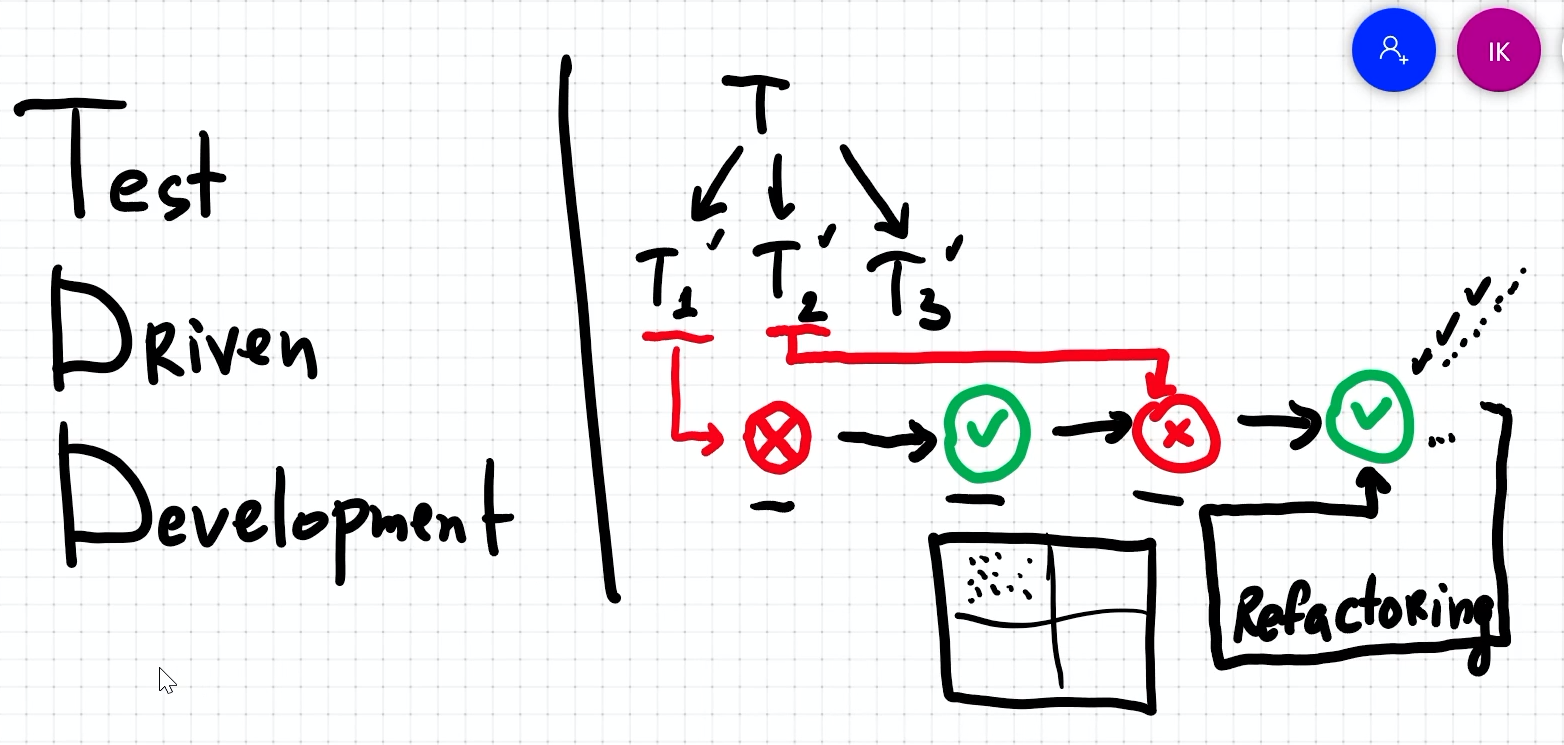 Test
Driven
Development
T
T1 T2 T3
...
Refactoring
IK